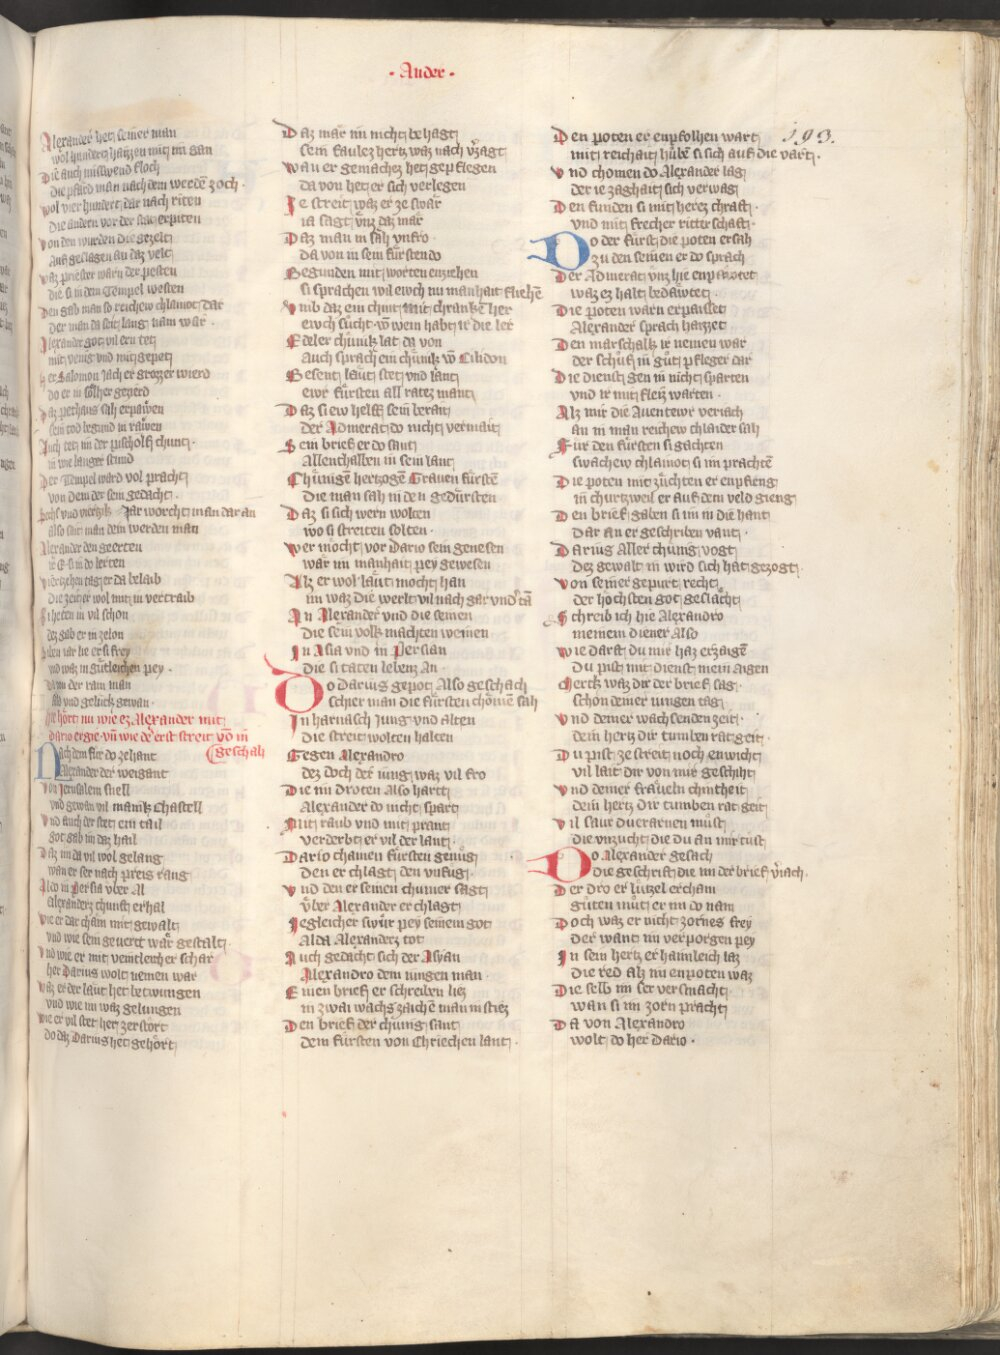 · Ander ·
193.
Alexander het seiner man
wol hundert haizzen mit im gan
Die auch missewend floch
die pfard man nach dem werdē zoch ·
wol vier hundert dar nach riten
die andern vor der stat erpiten
von den wurden die gezelt
Auf geslagen an daz velt
waz priester warn der pesten
die si in dem Tempel westen
Den gab man so reichew chlainot dar
der man da seit lang nam war ·
Alexander got vil ern tet
mit venig vnd mit gepet
her Salomon jach er grozzer wierd
do er in solher gezierd
Daz perhaus sah erpawen
sein tod begund in rawen
Auch tet im der pischolf chunt ·
in wie langer stund
Der Tempel ward vol pracht
von dem der sein gedacht ·
Sechs vnd viertzik Jar worcht man dar an
also sait man dem werden man
Alexander den geerten
ir E si in do lerten
viertzehen tag er da belaib
Die zeit er wol mit in vertraib
si heten in vil schon
dez gab er in zelon
siben iar lie er si frey
vnd waz in gütleichen pey ·
Da im der ram man
sid vnd gelück gewan ·
Hie hört nu wie ez Alexander mit
dario ergie · vn̄ wie d' erst streit vō in
geschah
Nach dem fur do zehant
Alexander der weigant
von Jerusalem snell
vnd gewan vil manik Chastell
vnd auch der stet ein tail
got gab im daz hail
Daz im da vil wol gelang
wan er ser nach preis rang
Aldo in Persia vber Al
Alexanders chunft erhal
wie er dar cham mit gewalt
vnd wie sein geuert wär gestalt
vnd wie er mit veintleicher schar
her Darius wolt nemen war
waz er der laut het betwungen
vnd wie im waz gelungen
wie er vil stet het zerstört
do daz Darius het gehört
Daz mar im nicht behagt
sein faulez hertz waz nach v̄zagt
wan er gemachez het gepflegen
da von het er sich verlegen
Je streit waz er ze swar
ia sagt vnz daz mar
Daz man in sah vnfro ·
da von in sein fürsten do
Begunden mit worten enziehen
si sprachen wil ewch nu manhait fliehē
vmb daz ein chint mit chrankē her
ewch sücht · vō wem habt ir die ler
Edeler chünik lat da von
Auch sprach ein chünik vō Cilidon
Besent läut stet vnd lant
ewr fürsten all ratez mant
Daz si ew helff sein berait
der Admerat do nicht vermait
Sein brief er do sant
Allenthalben in sein lant
Chünige hertzogē Grauen fürstē
Die man sah in den gedürsten
Daz si sich wern wolten
wo si streiten solten ·
wer mocht vor Dario sein genesen
war im manhait pey gewesen
Alz er wol laut mocht han
im waz die werlt vil nach gar vnd' tā
An Alexander vnd die seinen
die sein volk machten weinen
In Asia vnd in Persian
die si taten lebenz An ·
Do Darius gepot Also geschach
schier man die fürsten chomen sah
In harnasch Jung vnd alten
die streit wolten halten
Gegen Alexandro
dez doch der iung waz vil fro
Die im droten Also hart
Alexander do nicht spart
Mit raub vnd mit prant
verderbt er vil der lant
Dario chamen fürsten genüg
Den er chlagt den vnfug
vnd den er seinen chumer sagt
vber Alexander er chlagt
Jegleicher swür pey seinem got
Alda Alexanderz tot
Auch gedacht sich der Asyan
Alexandro dem iungen man ·
Einen brief er schreiben liez
in zwai wachs zaichē man in stiez
Den brief der chunig sant
dem fürsten von Chriechen lant ·
Den poten er enpfolhen wart
mit reichait hübē si sich auf die vart ·
vnd chomen do Alexander lag
der ie zaghait sich verwag
Den funden si mit herez chraft ·
vnd mit frecher ritterschaft ·
Do der fürst die poten ersah
zu den seinen er do sprach
Der Admerat vnz hie enpewtet
waz ez halt bedäwtet ·
Die poten warn erpaisset
Alexander sprach haizzet
Den marschalk ir nemen war
der schüf in güt pfleger dar
Die dienst gen in nicht sparten
vnd ir mit fleiz warten ·
Alz mir die Auentewr veriach
an in man reichew chlaider sah
Für den fürsten si gachten
swachew chlainot si im prachtē
Die poten mit züchten er enpfieng
in churtzweil er auf dem veld gieng
Den brief gaben si im in die hant
Dar an er geschriben vant ·
Darius Aller chünig vogt
Dez gewalt in wird sich hat gezogt ·
von seiner gepurt recht
der höchsten got geslächt
Schreib ich hie Alexandro
meinem diener Also
wie darst du mir haz erzaigē
du pist mit dienst mein aigen
Merk waz dir der brief sag
schon deiner iungen tag
vnd deiner wachsenden zeit ·
dein hertz dir tumben rat geit ·
Du pist ze streit noch enwicht
vil lait dir von mir geschiht
vnd deiner fräueln chintheit
dein hertz dir tumben rat geit
vil saur du erarnen müst
die vnzucht die du an mir tust
Do Alexander gesach
die geschrift die im der brief v̄iach ·
Der dro er lützel ercham
güten müt er im do nam
Doch waz er nicht zornes frey
der want im verporgen pey
In sein hertz er haimleich laz
die red alz im enpoten waz
Die selb im ser versmacht
wan si im zorn pracht
Da von Alexandro
wolt do her Dario ·